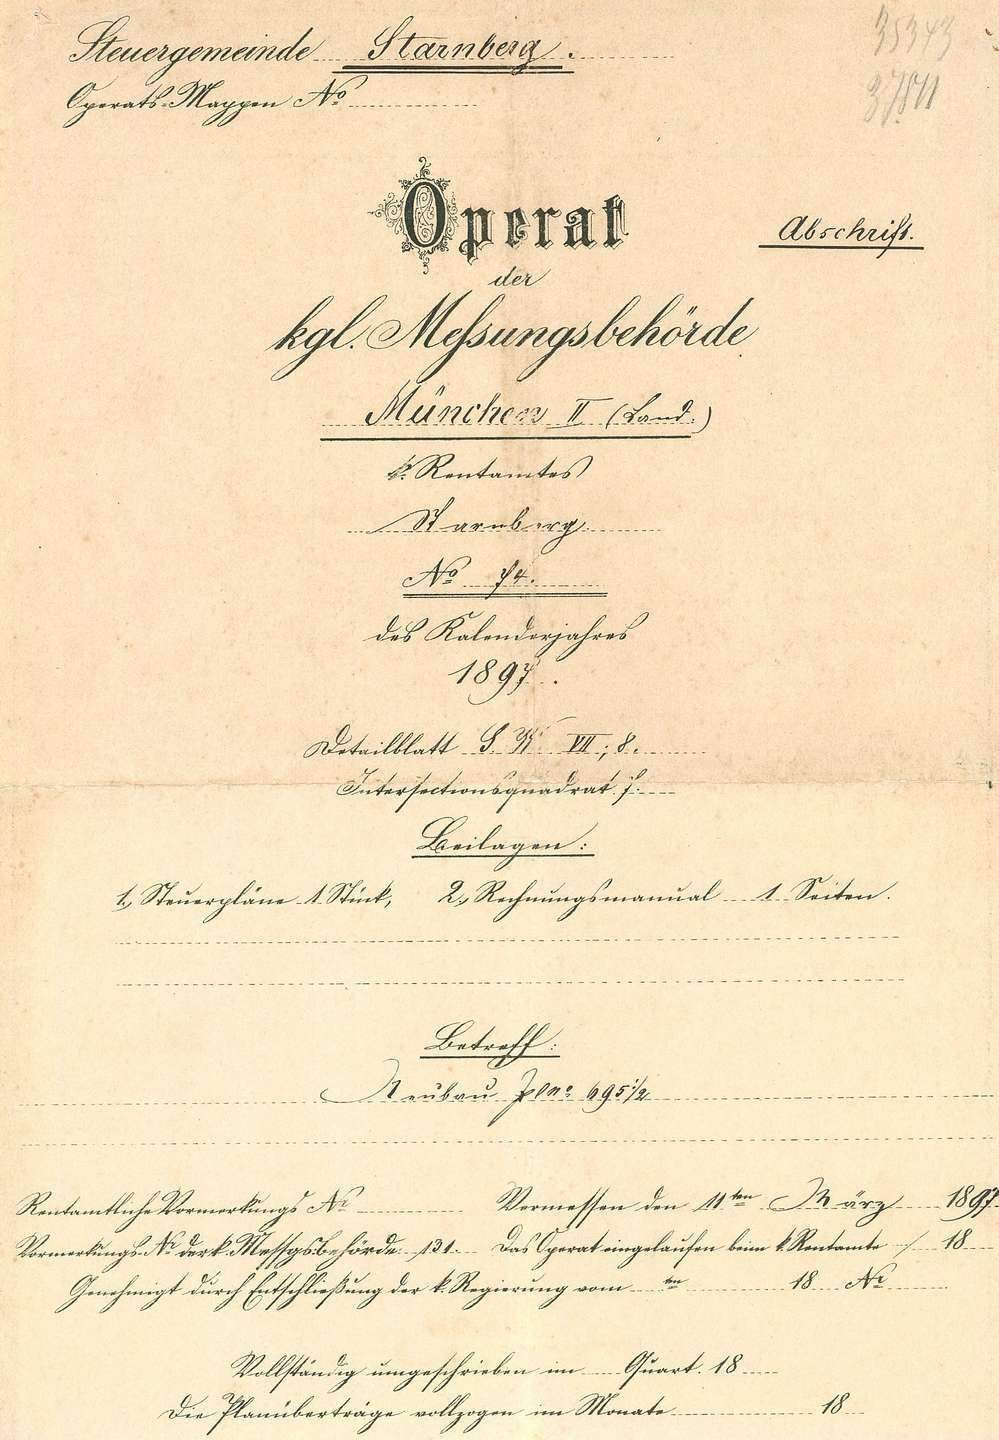 Steuergemeinde Starnberg.
35343
Operats-Mappen No
37811
Operat
Abschrift.
der
kgl. Messungsbehörde
München II (Land.)
k. Rentamtes
Starnberg.
No 74.
des Kalenderjahres
1897.
Detailblatt S. W. VII, 8.
Intersectionsquadrat f.
Beilagen:
1, Steuerpläne 1 Stück, 2, Rechnungsmanual 1 Seiten.
Betreff:
Neubau Plno 695 1/2
Rentamtliche Vormerkungs No Vermessen den 11ten März 1897.
Vormerkungs-No der k. Messgsbehörde 131. Das Operat eingelaufen beim k. Rentamte 18
Genehmigt durch Entschließung der k. Regierung vom ten 18 No
Vollständig umgeschrieben im Quart. 18
Die Planüberträge vollzogen im Monate 18